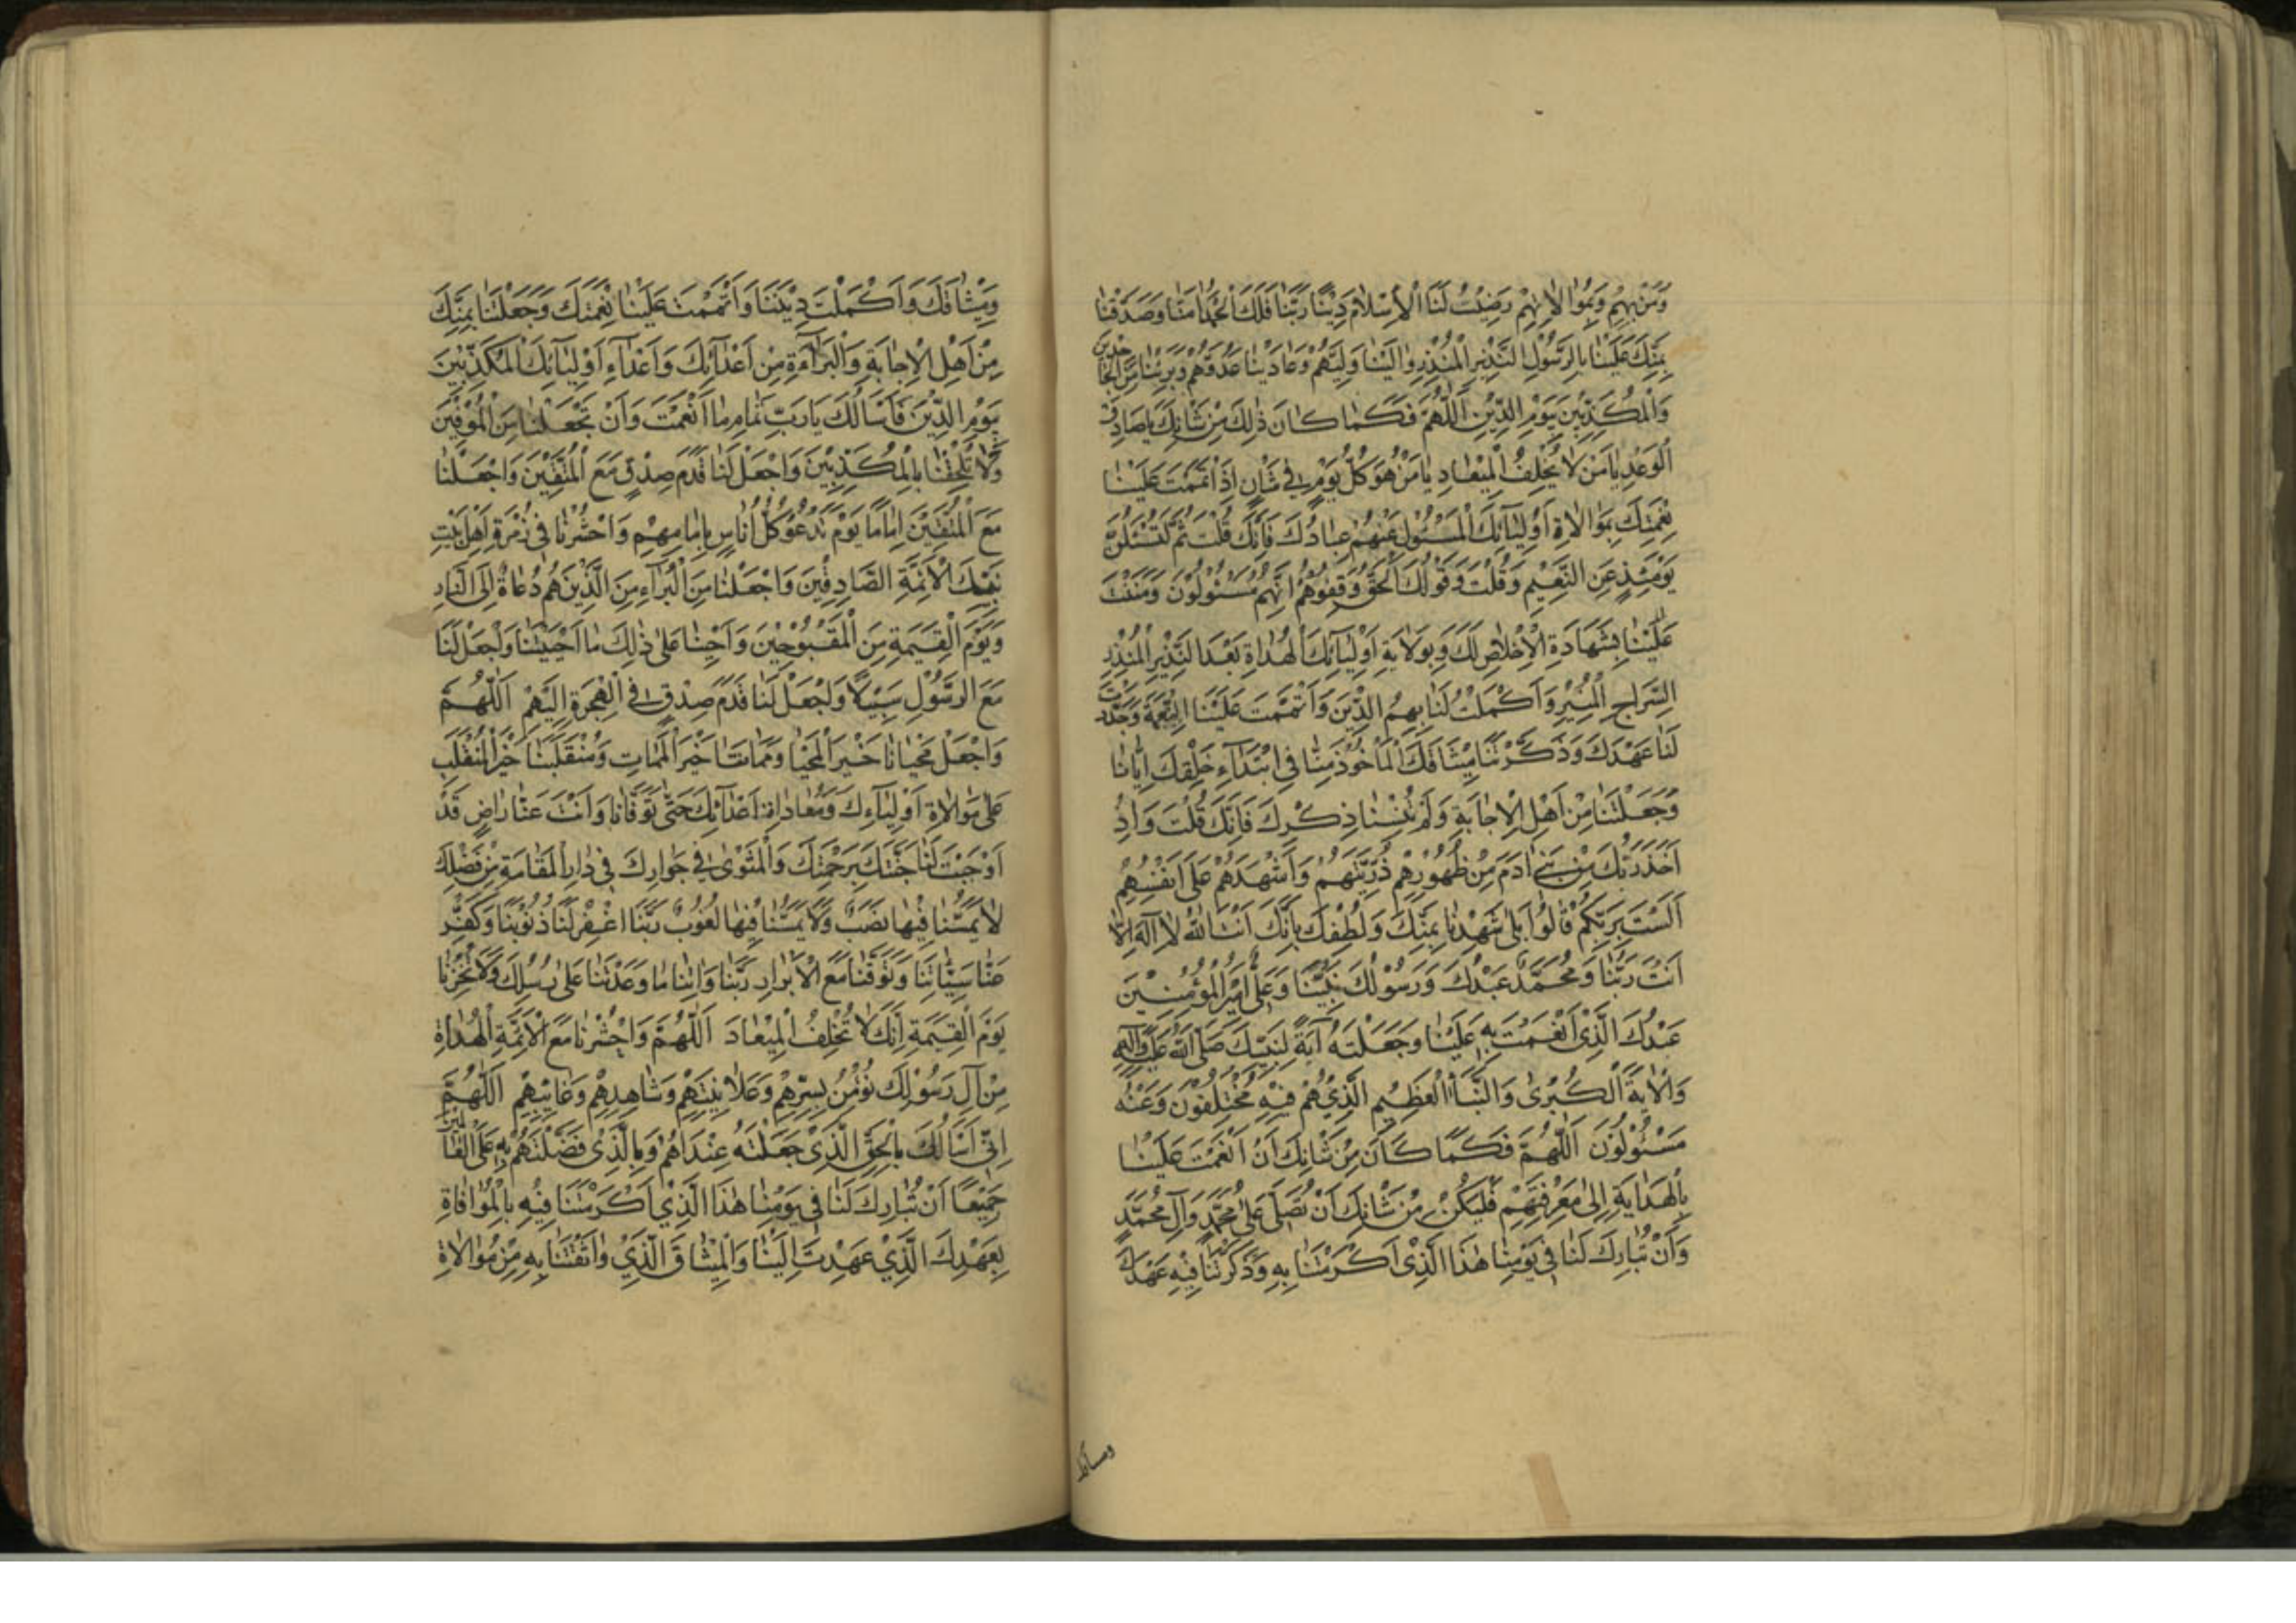 وَمَنِّهِمْ وَبِمُوٰالاٰتِهِمْ رَضِيْتَ لَنَا الْاِسْلٰامَ دِيْنًا رَبَّنَا فَلَكَ الْحَمْدُ اٰمَنَّا وَصَدَّقْنٰا
بِمَنِّكَ عَلَيْنٰا بِالرَّسُوْلِ النَّذِيْرِ الْمُنْذِرِ وٰالَيْنٰا وَلِيَّهُمْ وَعٰادَيْنٰا عَدُوَّهُمْ وَبَرِئْنٰا مِنَ الْجٰاحِدِيْنَ
وَالْمُكَذِّبِيْنَ بِيَوْمِ الدِّيْنِ اَللّٰهُمَّ فَكَمٰا كٰانَ ذٰلِكَ مِنْ شَاْنِكَ يٰا صٰادِقَ
الْوَعْدِ يٰا مَنْ لٰا يُخْلِفُ الْمِيْعٰادِ يٰا مَنْ هُوَ كُلَّ يَوْمٍ فِيْ شَاْنٍ اِذْ اَتْمَمْتَ عَلَيْنٰا
نِعْمَتَكَ بِمَوٰالٰاةِ اَوْلِيٰآئِكَ الْمَسْئُوْلِ عَنْهُمْ عِبٰادُكَ فَاِنَّكَ قُلْتَ ثُمَّ لَتُسْئَلُنَّ
يَوْمَئِذٍ عَنِ النَّعِيْمِ وَقُلْتَ وَقَوْلُكَ الْحَقُّ وَقِفُوْهُمْ اِنَّهُمْ مَسْئُوْلُوْنَ وَمَنَنْتَ
عَلَيْنٰا بِشَهٰادَةِ الْاِخْلاٰصِ لَكَ وَبِوَلاٰيَةِ اَوْلِيٰآئِكَ الْهُدٰاةِ بَعْدَ النَّذِيْرِ الْمُنْذِرِ
السِّرٰاجِ الْمُنِيْرِ وَاَكْمَلْتَ لَنٰا بِهِمُ الدِّيْنَ وَاَتْمَمْتَ عَلَيْنَا النِّعْمَةَ وَجَدَّدْتَ
لَنٰا عَهْدَكَ وَذَكَّرْتَنٰا مِيْثٰاقَكَ الْمَأْخُوْذَ مِنّٰا فِي ابْتِدَآءِ خَلْقِكَ اِيّٰانٰا
وَجَعَلْتَنٰا مِنْ اَهْلِ الْاِجٰابَةِ وَلَمْ تُنْسِنٰا ذِكْرَكَ فَاِنَّكَ قُلْتَ وَاِذْ
اَخَذَ رَبُّكَ مِنْ بَنِيْ اٰدَمَ مِنْ ظُهُوْرِهِمْ ذُرِّيَّتَهُمْ وَاَشْهَدَهُمْ عَلٰى اَنْفُسِهِمْ
اَلَسْتُ بِرَبِّكُمْ قٰالُوْا بَلٰى شَهِدْنٰا بِمَنِّكَ وَلُطْفِكَ بِاَنَّكَ اَنْتَ اللّٰهُ لٰا اِلٰهَ اِلّٰا
اَنْتَ رَبُّنٰا وَمُحَمَّدٌ عَبْدُكَ وَرَسُوْلُكَ نَبِيُّنٰا وَعَلِيٌّ اَمِيْرُ الْمُؤْمِنِيْنَ
عَبْدُكَ الَّذِيْ اَنْعَمْتَ بِهِ عَلَيْنٰا وَجَعَلْتَهُ اٰيَةً لِنَبِيِّكَ صَلَّى اللّٰهُ عَلَيْهِ وَاٰلِهِ
وَالْاٰيَةَ الْكُبْرٰى وَالنَّبَأَ الْعَظِيْمِ الَّذِيْ هُمْ فِيْهِ مُخْتَلِفُوْنَ وَعَنْهُ
مَسْئُوْلُوْنَ اَللّٰهُمَّ فَكَمٰا كٰانَ مِنْ شَاْنِكَ اَنْ اَنْعَمْتَ عَلَيْنٰا
بِالْهِدٰايَةِ اِلٰى مَعْرِفَتِهِمْ فَلْيَكُنْ مِنْ شَاْنِكَ اَنْ تُصَلِّيَ عَلٰى مُحَمَّدٍ وَاٰلِ مُحَمَّدٍ
وَاَنْ تُبٰارِكَ لَنٰا فِيْ يَوْمِنٰا هٰذَا الَّذِيْ اَكْرَمْتَنٰا بِهِ وَذَكَّرْتَنٰا فِيْهِ عَهْدَكَ
وَمِيْثٰاقَكَ وَاَكْمَلْتَ دِيْنَنٰا وَاَتْمَمْتَ عَلَيْنٰا نِعْمَتَكَ وَجَعَلْتَنٰا بِمَنِّكَ
مِنْ اَهْلِ الْاِجٰابَةِ وَالْبَرٰاءَةِ مِنْ اَعْدٰآئِكَ وَاَعْدٰآءِ اَوْلِيٰآئِكَ الْمُكَذِّبِيْنَ
بِيَوْمِ الدِّيْنَ فَاَسْاَلُكَ يٰا رَبِّ تَمٰامَ مٰا اَنْعَمْتَ وَاَنْ تَجْعَلَنٰا مِنَ الْمُوْفِيْنَ
وَلٰا تُلْحِقْنٰا بِالْمُكَذِّبِيْنَ وَاجْعَلْ لَنٰا قَدَمَ صِدْقٍ مَعَ الْمُتَّقِيْنَ وَاجْعَلْنٰا
مَعَ الْمُتَّقِيْنَ اِمٰامًا يَوْمَ تَدْعُوْ كُلَّ اُنٰاسٍ بِاِمٰامِهِمْ وَاحْشُرْنٰا فِيْ زُمْرَةِ اَهْلِ بَيْتِ
نَبِيِّكَ الْاَئِمَّةِ الصّٰادِقِيْنَ وَاجْعَلْنٰا مِنَ الْبُرَآءِ مِنَ الَّذِيْنَ هُمْ دُعٰاةٌ اِلَى النّٰارِ
وَيَوْمَ الْقِيٰمَةِ مِنَ الْمَقْبُوْحِيْنَ وَاَحْيِنٰا عَلٰى ذٰلِكَ مٰا اَحْيَيْتَنٰا وَاجْعَلْ لَنٰا
مَعَ الرَّسُوْلِ سَبِيْلًا وَاجْعَلْ لَنٰا قَدَمَ صِدْقٍ فِي الْهِجْرَةِ اِلَيْهِمْ اَللّٰهُمَّ
وَاجْعَلْ مَحْيٰانٰا خَيْرَ الْمَحْيٰا وَمَمٰاتَنٰا خَيْرَ الْمَمٰاتِ وَمُنْقَلَبَنٰا خَيْرَ الْمُنْقَلَبِ
عَلٰى مُوٰالاٰةِ اَوْلِيٰآءِكَ وَمُعٰادٰاةِ اَعْدٰآئِكَ حَتّٰى تَوَفّٰانٰا وَاَنْتَ عَنّٰا رٰاضٍ قَدْ
اَوْجَبْتَ لَنٰا جَنَّتَكَ بِرَحْمَتِكَ وَالْمَثْوٰى فِيْ جِوٰارِكَ فِيْ دٰارِ الْمُقٰامَةِ مِنْ فَضْلِكَ
لٰا يَمَسُّنٰا فِيْهٰا نَصَبٌ وَلٰا يَمَسُّنٰا فِيْهٰا لُغُوْبٌ رَبَّنَا اغْفِرْ لَنٰا ذُنُوْبَنٰا وَكَفِّرْ
عَنّٰا سَيِّئٰاتِنٰا وَتَوَفَّنٰا مَعَ الْاَبْرٰارِ رَبَّنٰا وَاٰتِنٰا مٰا وَعَدْتَنٰا عَلٰى رُسُلِكَ وَلٰا تُخْزِنٰا
يَوْمَ الْقِيٰمَةِ اِنَّكَ لٰا تُخْلِفُ الْمِيْعٰادَ اَللّٰهُمَّ وَاحْشُرْنٰا مَعَ الْاَئِمَّةِ الْهُدٰاةِ
مِنْ اٰلِ رَسُوْلِكَ نُؤْمِنُ بِسِرِّهِمْ وَعَلاٰنِيَتِهِمْ وَشٰاهِدِهِمْ وَغٰائِبِهِمْ اَللّٰهُمَّ
اِنِّيْ اَسْاَلُكَ بِالْحَقِّ الَّذِيْ جَعَلْتَهُ عِنْدَهُمْ وَبِالَّذِيْ فَضَّلْتَهُمْ بِهِ عَلَى الْعٰالَمِيْنَ
جَمِيْعًا اَنْ تُبٰارِكَ لَنٰا فِيْ يَوْمِنٰا هٰذَا الَّذِيْ اَكْرَمْتَنٰا فِيْهِ بِالْمُوٰافٰاةِ
بِعَهْدِكَ الَّذِيْ عَهِدْتَ اِلَيْنٰا وَالْمِيْثٰاقَ الَّذِيْ وٰاثَقْتَنٰا بِهِ مِنْ مُوٰالاٰةِ